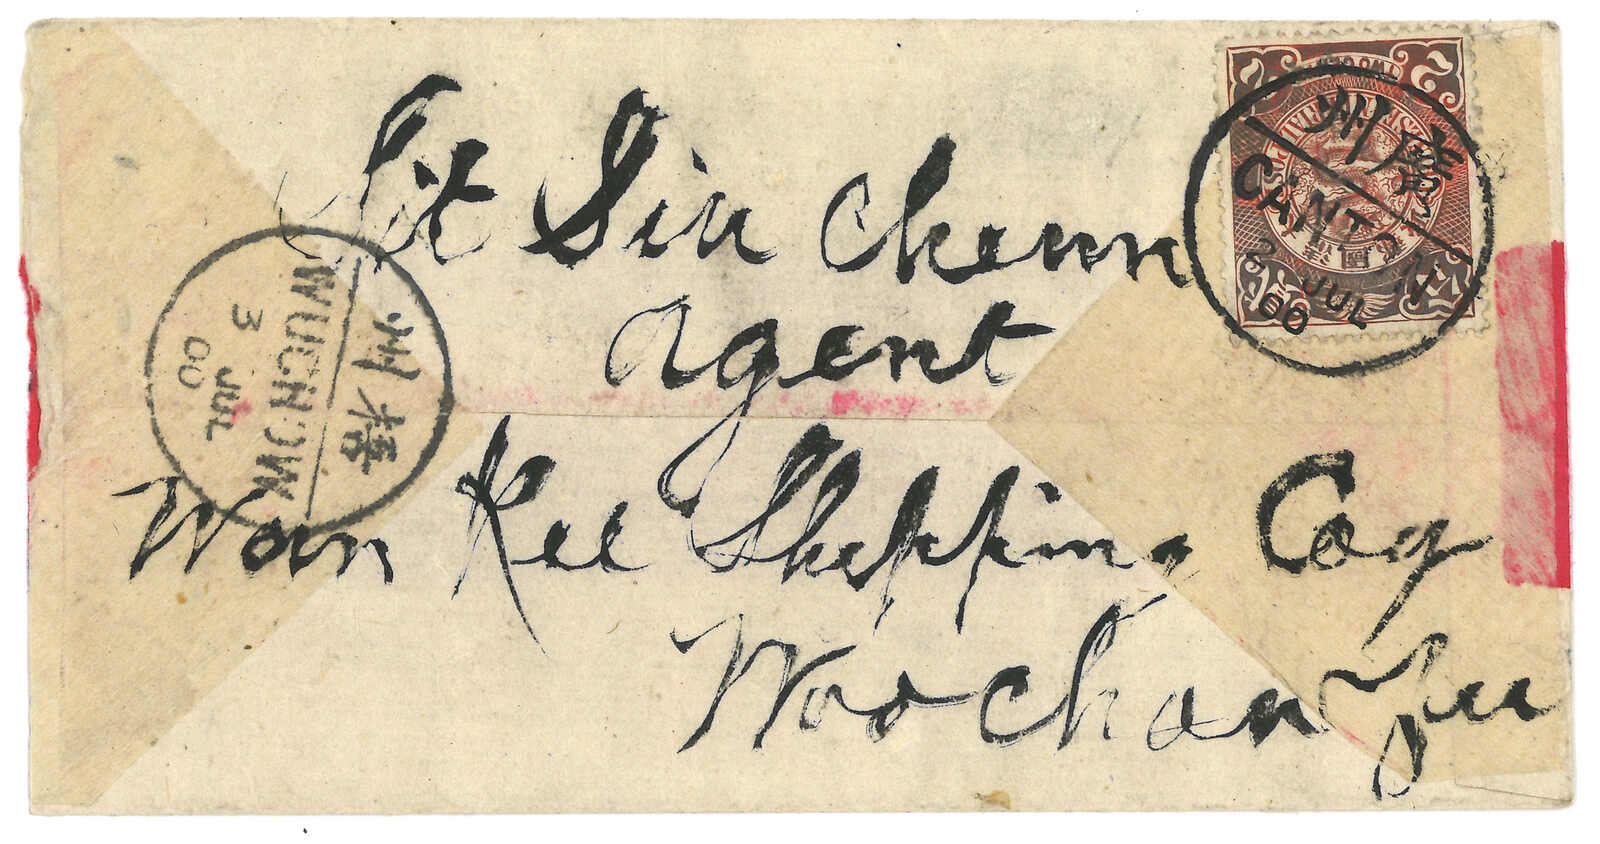 Sit Sin Chenn
agent
Wan Kee Shipping Coy
Woochan Fu
廣州
CANTON
2 JUL
00
梧州
WUCHOW
3
JUL
00
2
2